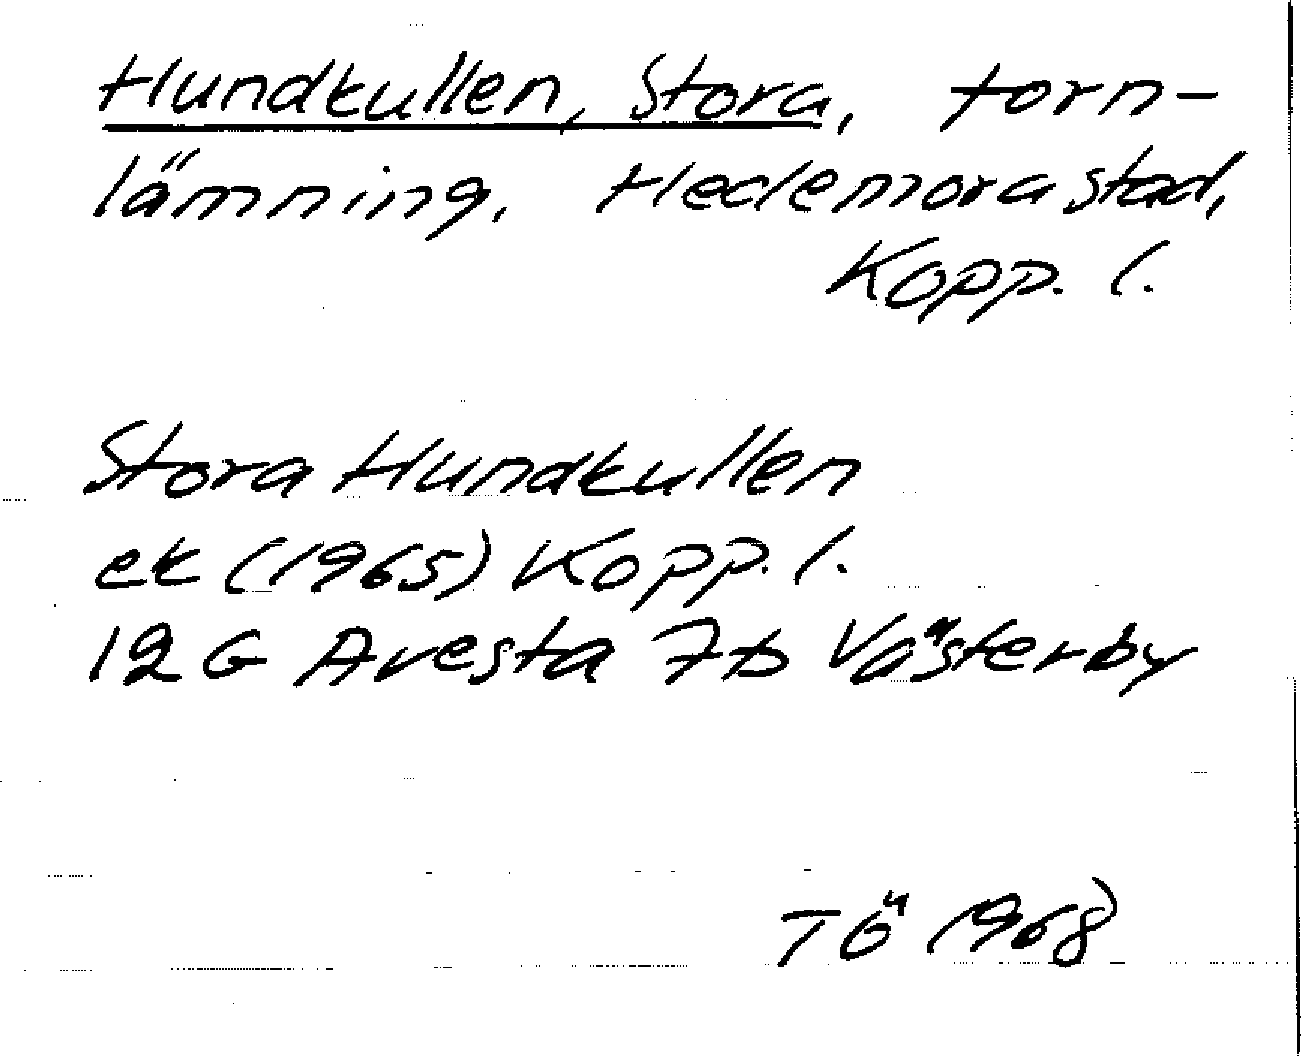 Hundkullen, Stora, torn-
lämning, Hedemora stad,
Kopp. l.
Stora Hundkullen
ek (1965) Kopp. l.
12 G Avesta 7b Västerby
TÖ 1968